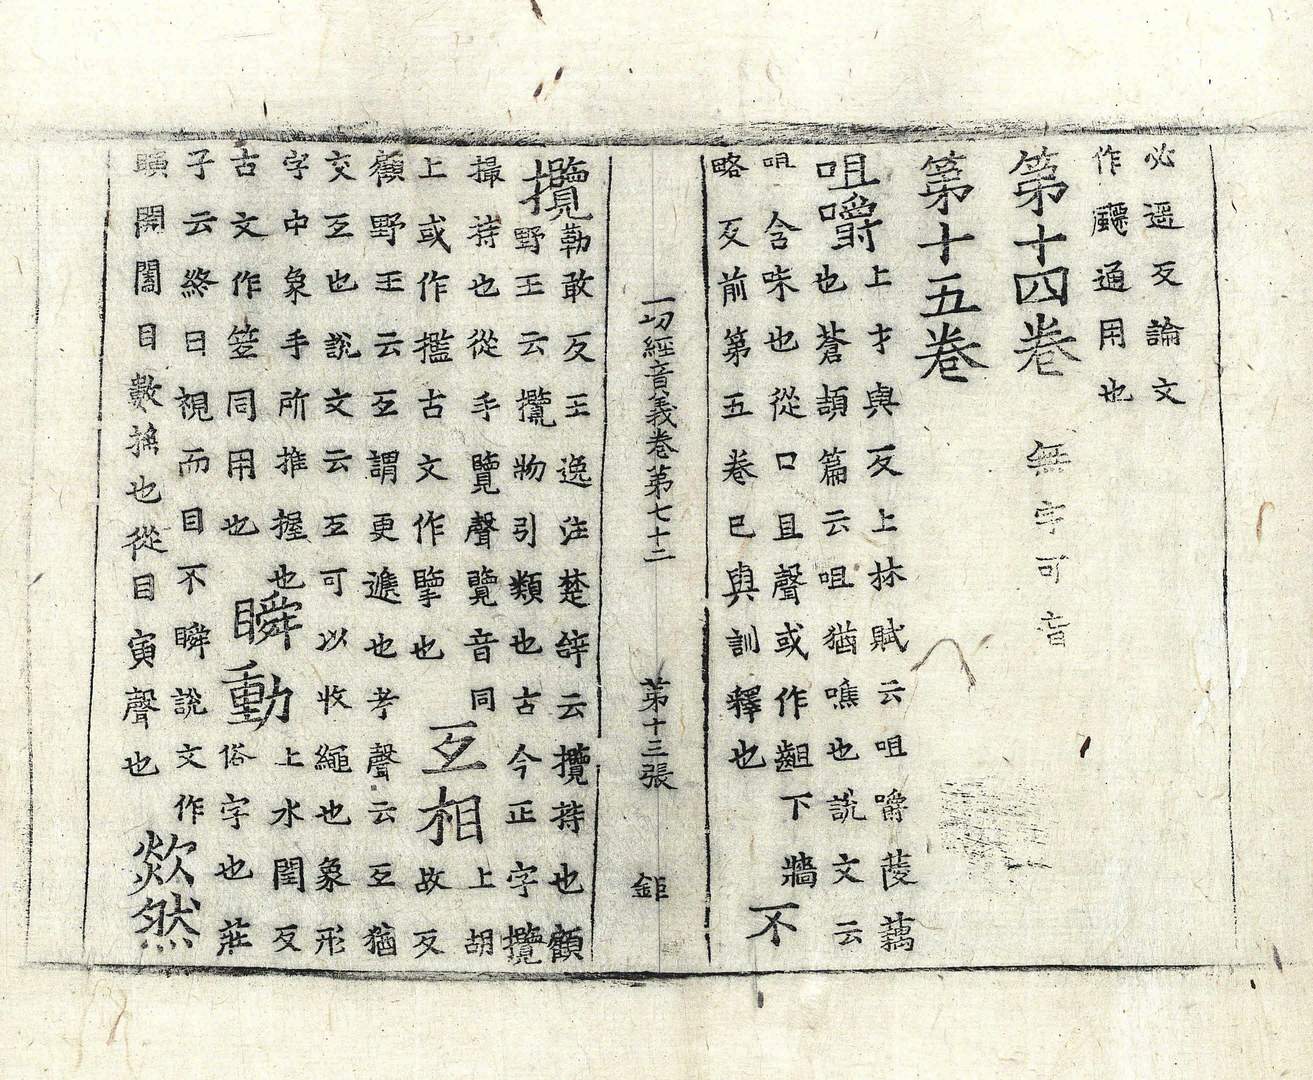 必遥反論文
作飆通用也
第十四卷 無字可音
第十五卷
咀嚼 上才與反上林賦云咀嚼菱藕
也蒼頡篇云咀猶噍也說文云
咀含味也從口且聲或作齟下牆
略反前第五卷已與訓釋也 不
一切經音義卷第七十二 第十三張 鉅
攬 勒敢反王逸注楚辝云攬持也顧
野王云攬物引類也古今正字攬
撮持也從手覽聲覽音同
上或作㩜古文作擥也 互相 上胡
故反
顧野王云互謂更遞也考聲云互猶
交互也說文云互可以收繩也象形
字中象手所推握也
古文作笠同用也 瞬動 上水閏反
俗字也莊
子云終日視而目不瞬說文作
瞚開闔目數搖也從目寅聲也 欻然